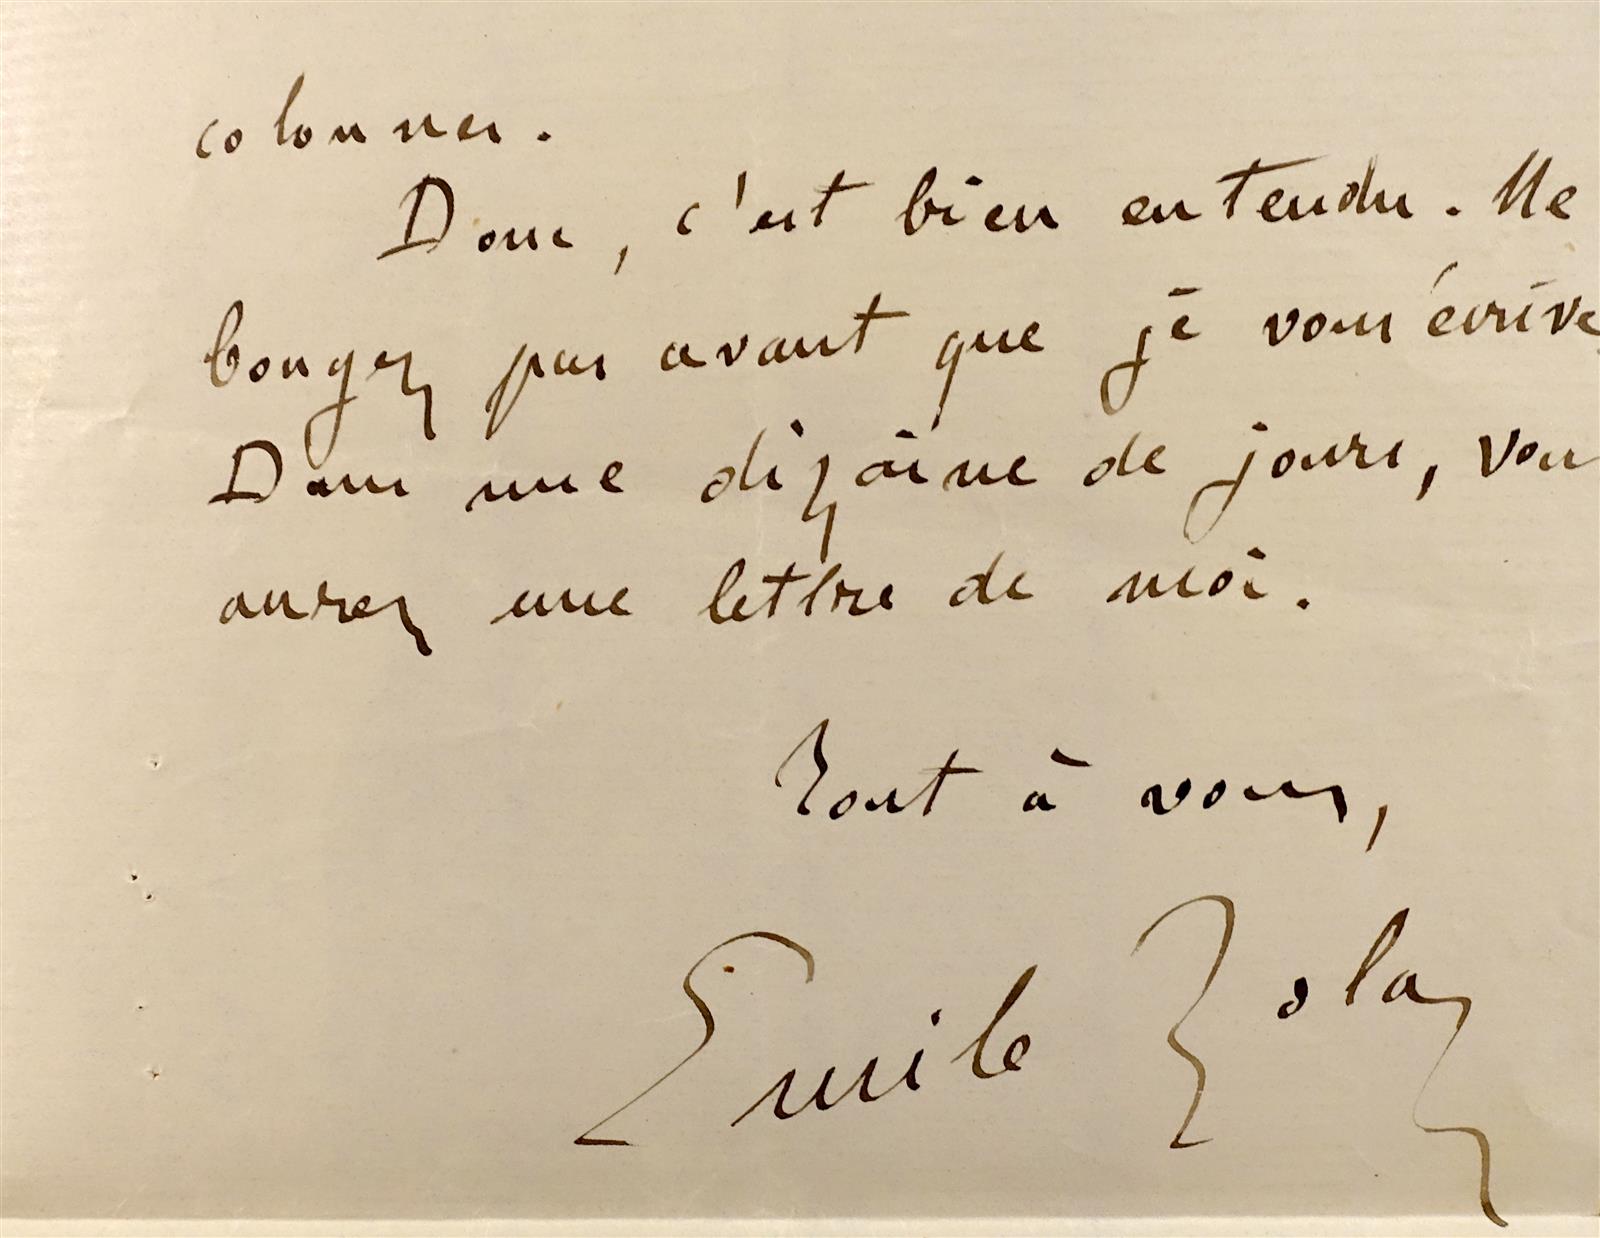 colonnes.
Donc, c'est bien entendu. Ne
bougez pas avant que je vous écrive.
Dans une dizaine de jours, vou
aurez une lettre de moi.
Tout à vous,
Emile Zola